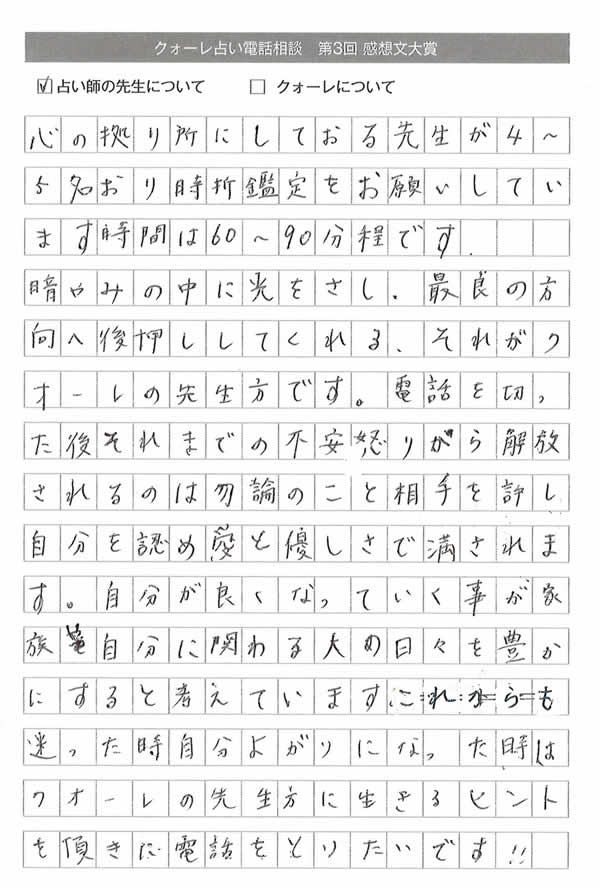 クォーレ占い電話相談 第3回 感想文大賞
☑占い師の先生について □ クォーレについて
心の拠り所にしておる先生が4〜
5名おり時折鑑定をお願いしてい
ます時間は60〜90分程です.
暗やみの中に光をさし、最良の方
向へ後押ししてくれる、それがク
オーレの先生方です。電話を切っ
た後それまでの不安怒りから解放
されるのは勿論のこと相手を許し
自分を認め愛と優しさで満されま
す。自分が良くなっていく事が家
族 自分に関わる人の日々を豊か
にすると考えていますこれからも
迷った時自分よがりになった時は
クオーレの先生方に生きるヒント
を頂きに電話をとりたいです!!